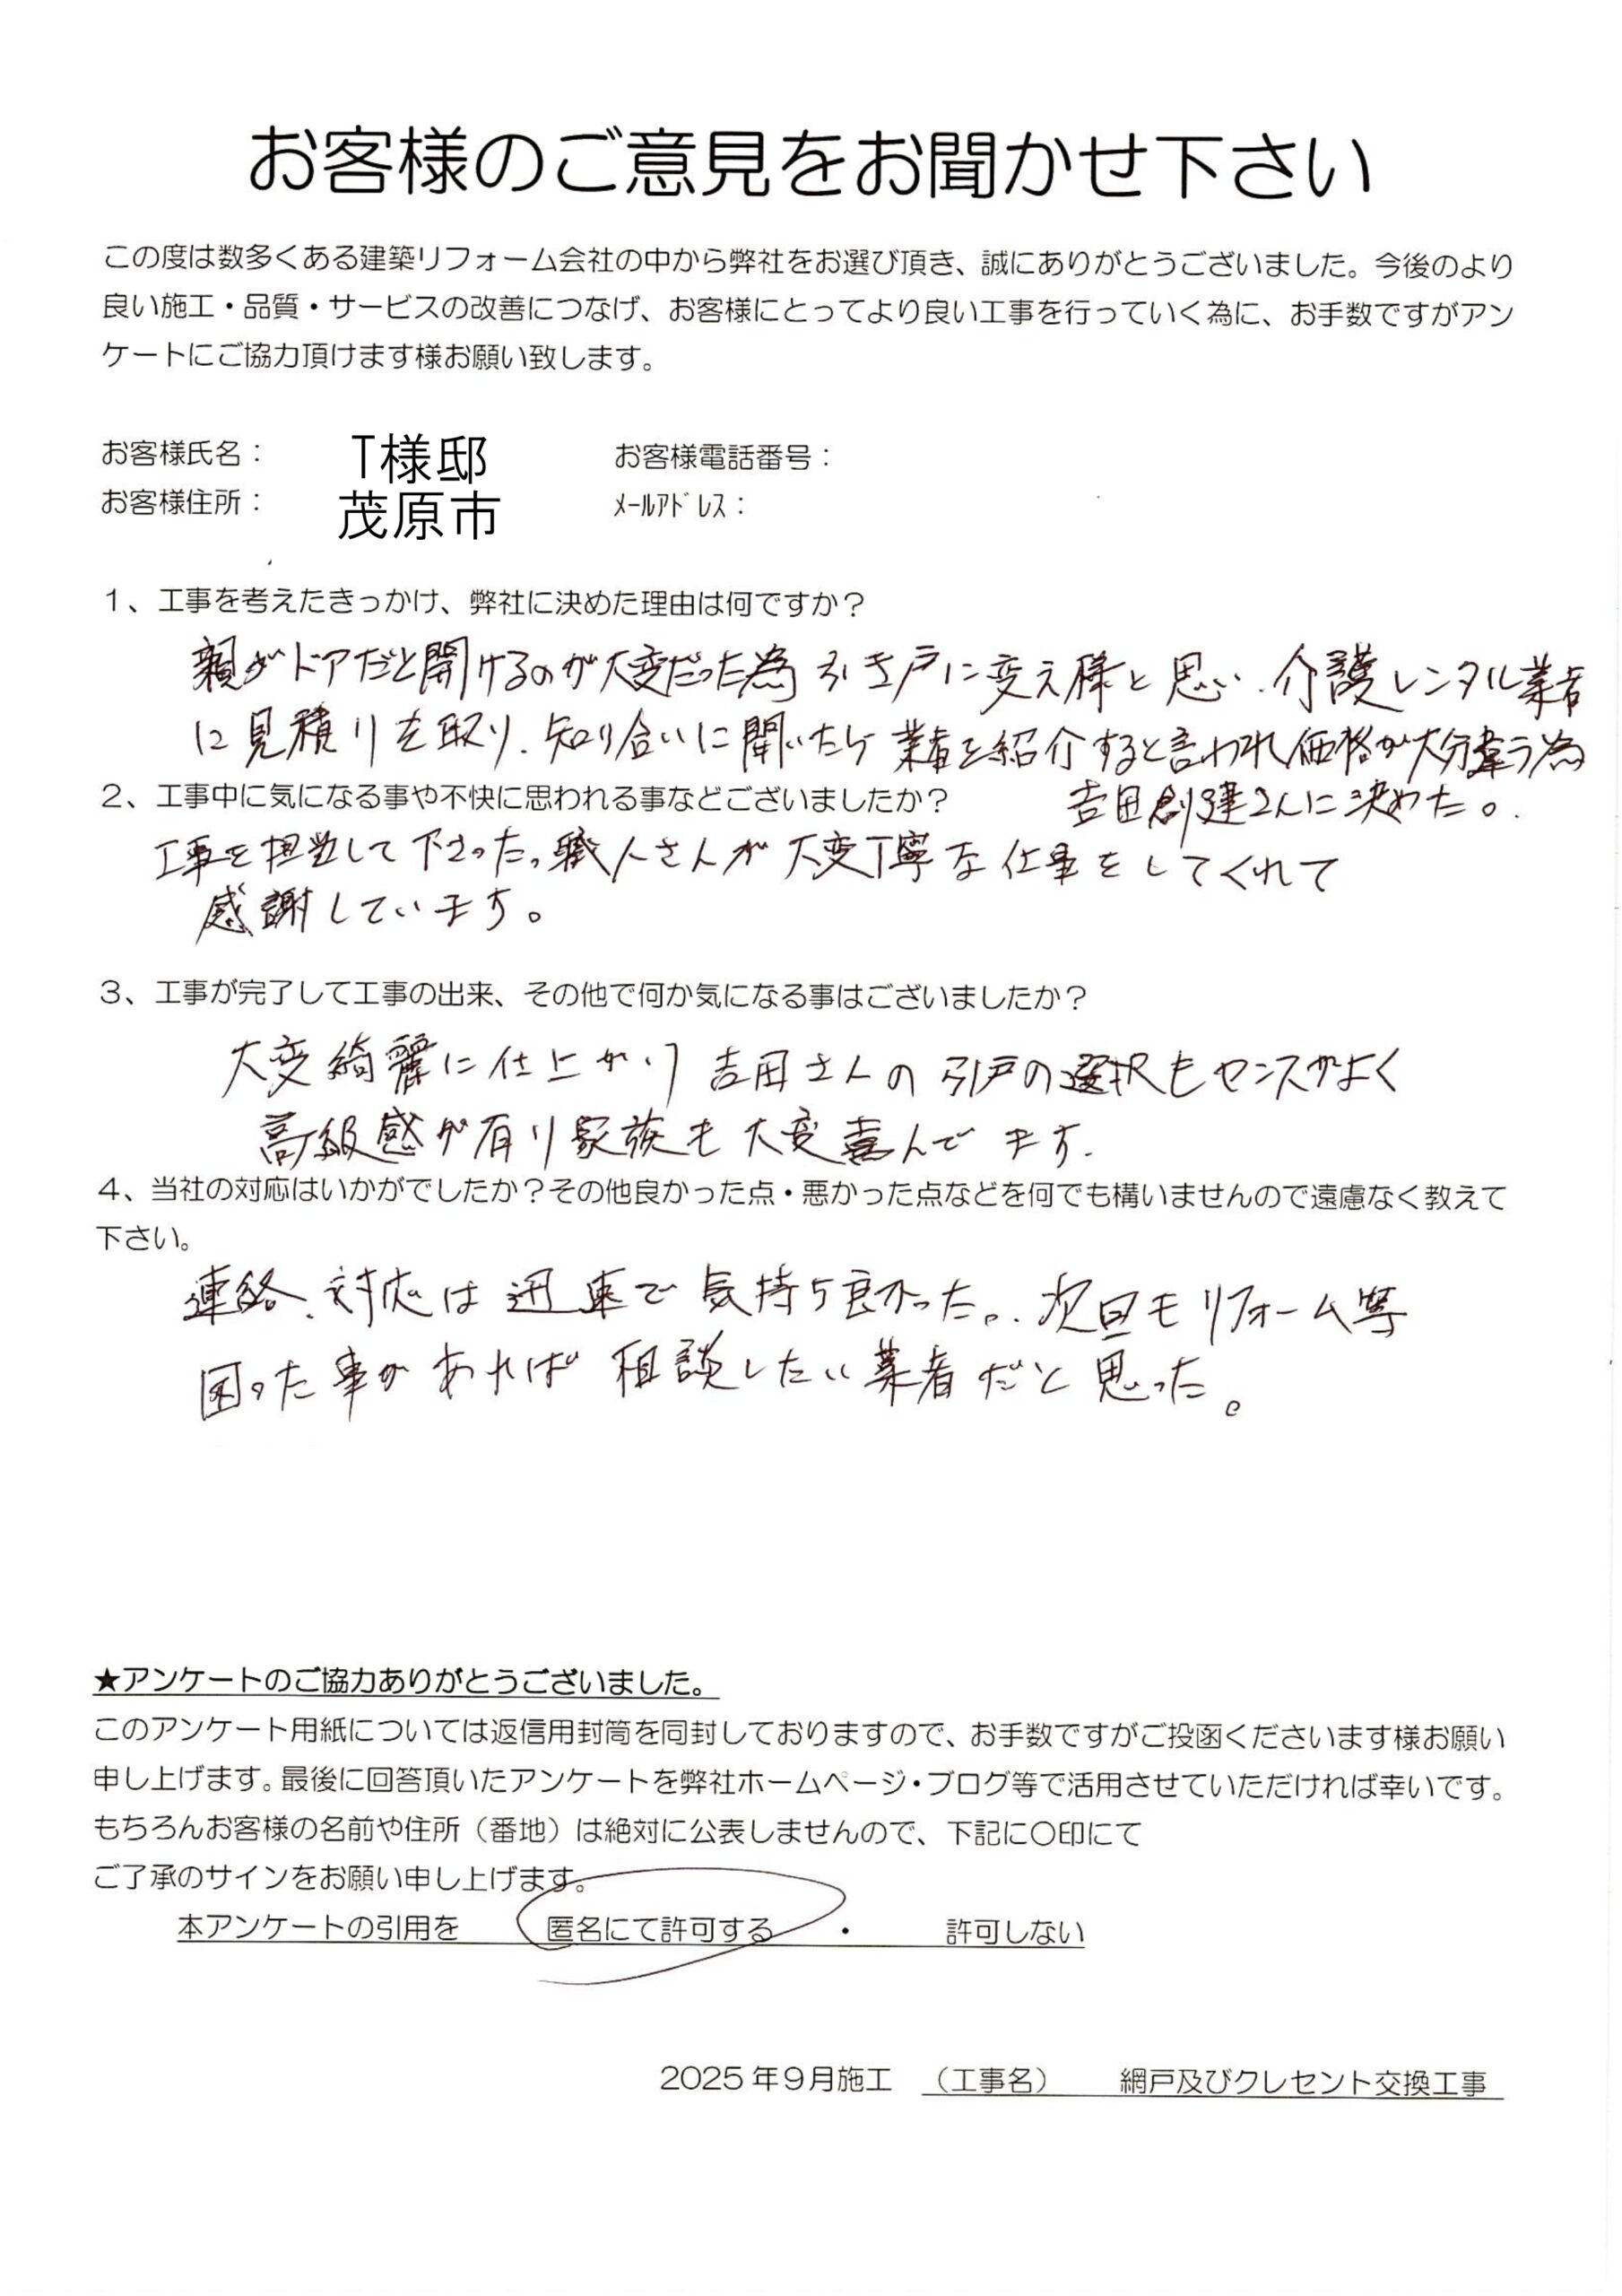 お客様のご意見をお聞かせ下さい
この度は数多くある建築リフォーム会社の中から弊社をお選び頂き、誠にありがとうございました。今後のより
良い施工・品質・サービスの改善につなげ、お客様にとってより良い工事を行っていく為に、お手数ですがアン
ケートにご協力頂けます様お願い致します。
お客様氏名： T様邸 お客様電話番号：
お客様住所： 茂原市 ﾒｰﾙｱﾄﾞﾚｽ：
1、工事を考えたきっかけ、弊社に決めた理由は何ですか？
親がドアだと開けるのが大変だった為 引き戸に変え様と思い、介護レンタル業者
に見積りを取り、知り合いに聞いたら業者を紹介すると言われ価格が大分違う為
吉田創建さんに決めた。
2、工事中に気になる事や不快に思われる事などございましたか？
工事を担当して下さった。職人さんが大変丁寧な仕事をしてくれて
感謝しています。
3、工事が完了して工事の出来、その他で何か気になる事はございましたか？
大変綺麗に仕上がり 吉田さんの引戸の選択もセンスがよく
高級感が有り家族も大変喜んでます.
4、当社の対応はいかがでしたか？その他良かった点・悪かった点などを何でも構いませんので遠慮なく教えて
下さい。
連絡、対応は迅速で気持ち良かった。次回もリフォーム等
困った事があれば相談したい業者だと思った。
★アンケートのご協力ありがとうございました。
このアンケート用紙については返信用封筒を同封しておりますので、お手数ですがご投函くださいます様お願い
申し上げます。最後に回答頂いたアンケートを弊社ホームページ・ブログ等で活用させていただければ幸いです。
もちろんお客様の名前や住所（番地）は絶対に公表しませんので、下記に〇印にて
ご了承のサインをお願い申し上げます。
本アンケートの引用を 匿名にて許可する ・ 許可しない
2025年9月施工 （工事名） 網戸及びクレセント交換工事